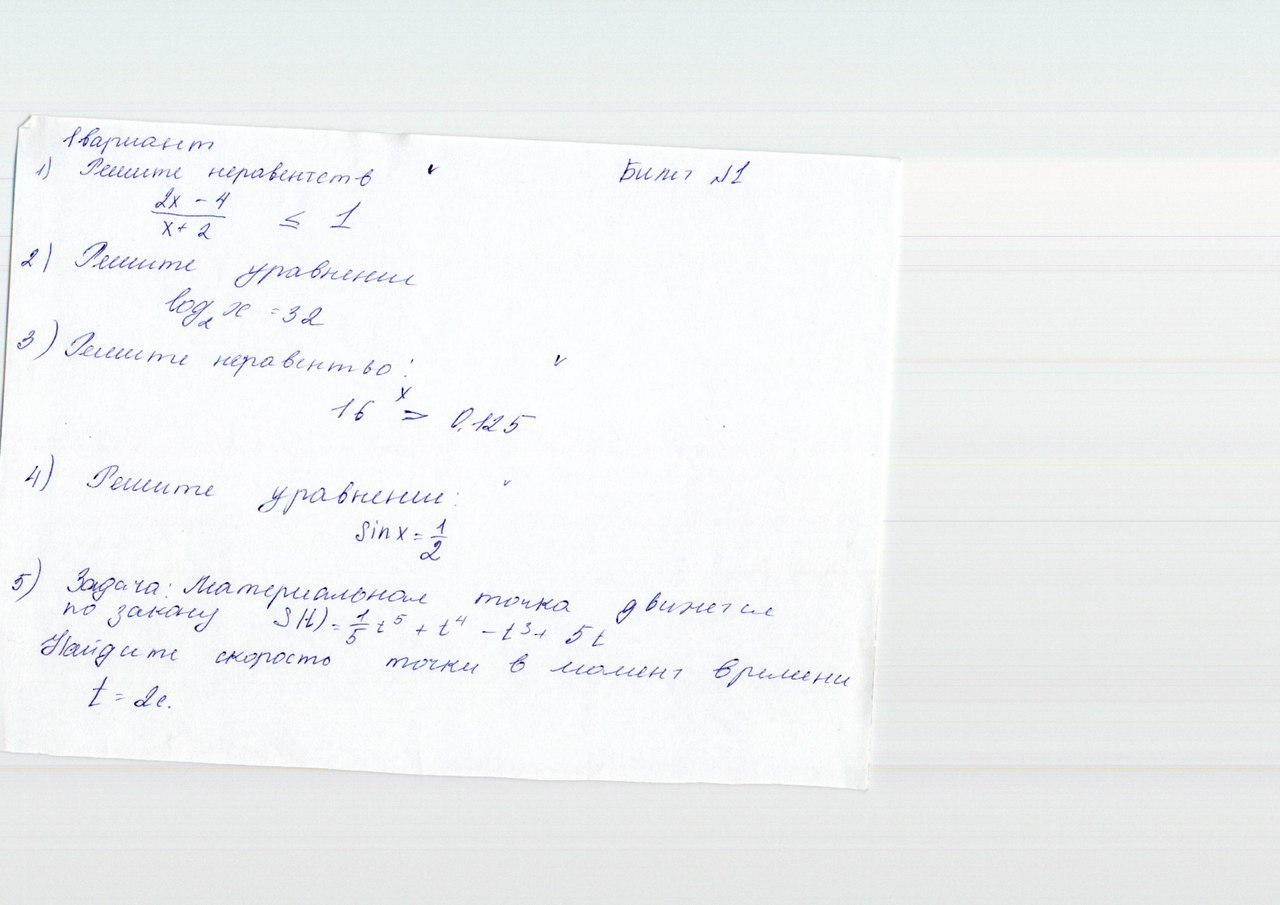 1 вариант
1) Решите неравентств Билет №1
2x - 4
x + 2 ≤ 1
2) Решите уравнение
log₂ x = 32
3) Решите неравентво:
16ˣ = 0,125
4) Решите уравнение:
sin x = 1/2
5) Задача: Материальная точка движется
по закану S(t) = 1/5 t⁵ + t⁴ - t³ + 5t
Найдите скорость точки в момент времени
t = 2с.